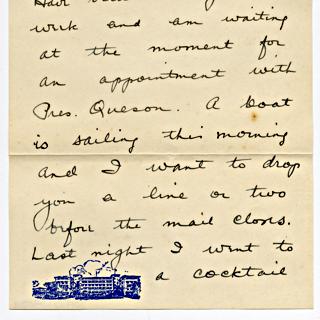 wick and am waiting
at the moment for
an appointment with
Pres. Quezon. A boat
is sailing this morning
and I want to drop
you a line or two
before the mail closes.
Last night I went to
a cocktail